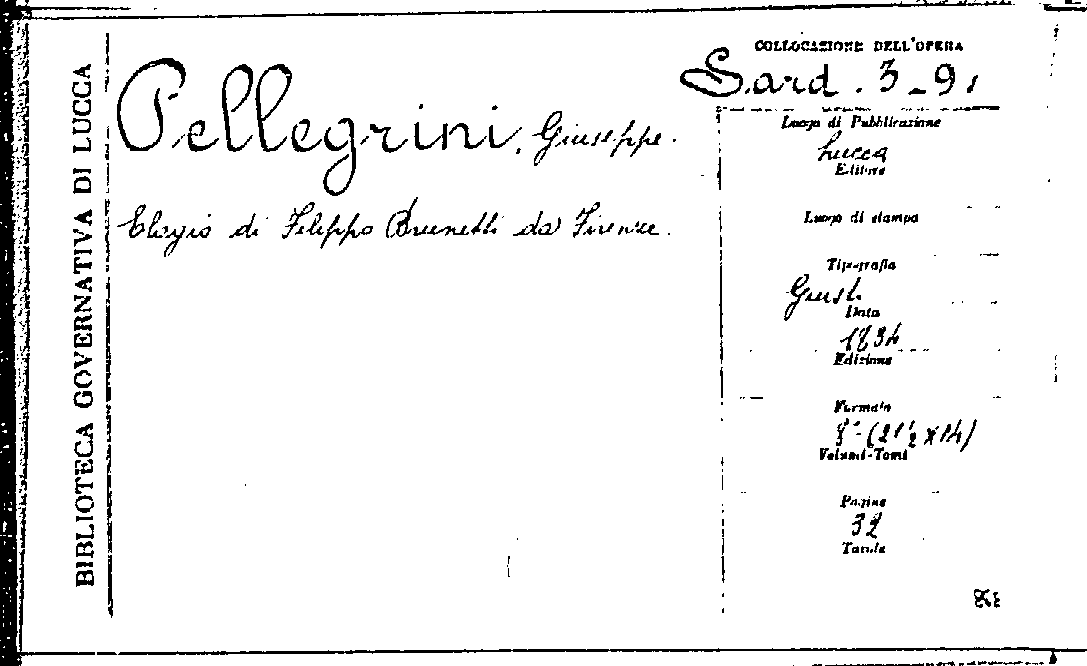 BIBLIOTECA GOVERNATIVA DI LUCCA
Pellegrini, Giuseppe.
Elogio di Filippo Brunetti da Firenze.
COLLOCAZIONE DELL'OPERA
Sard. 3-9,
Luogo di Pubblicazione
Lucca
Editore
Luogo di stampa
Tipografia
Giusti
Data
1834
Edizione
Formato
8° (21½ x 14)
Volumi-Tomi
Pagine
32
Tavole